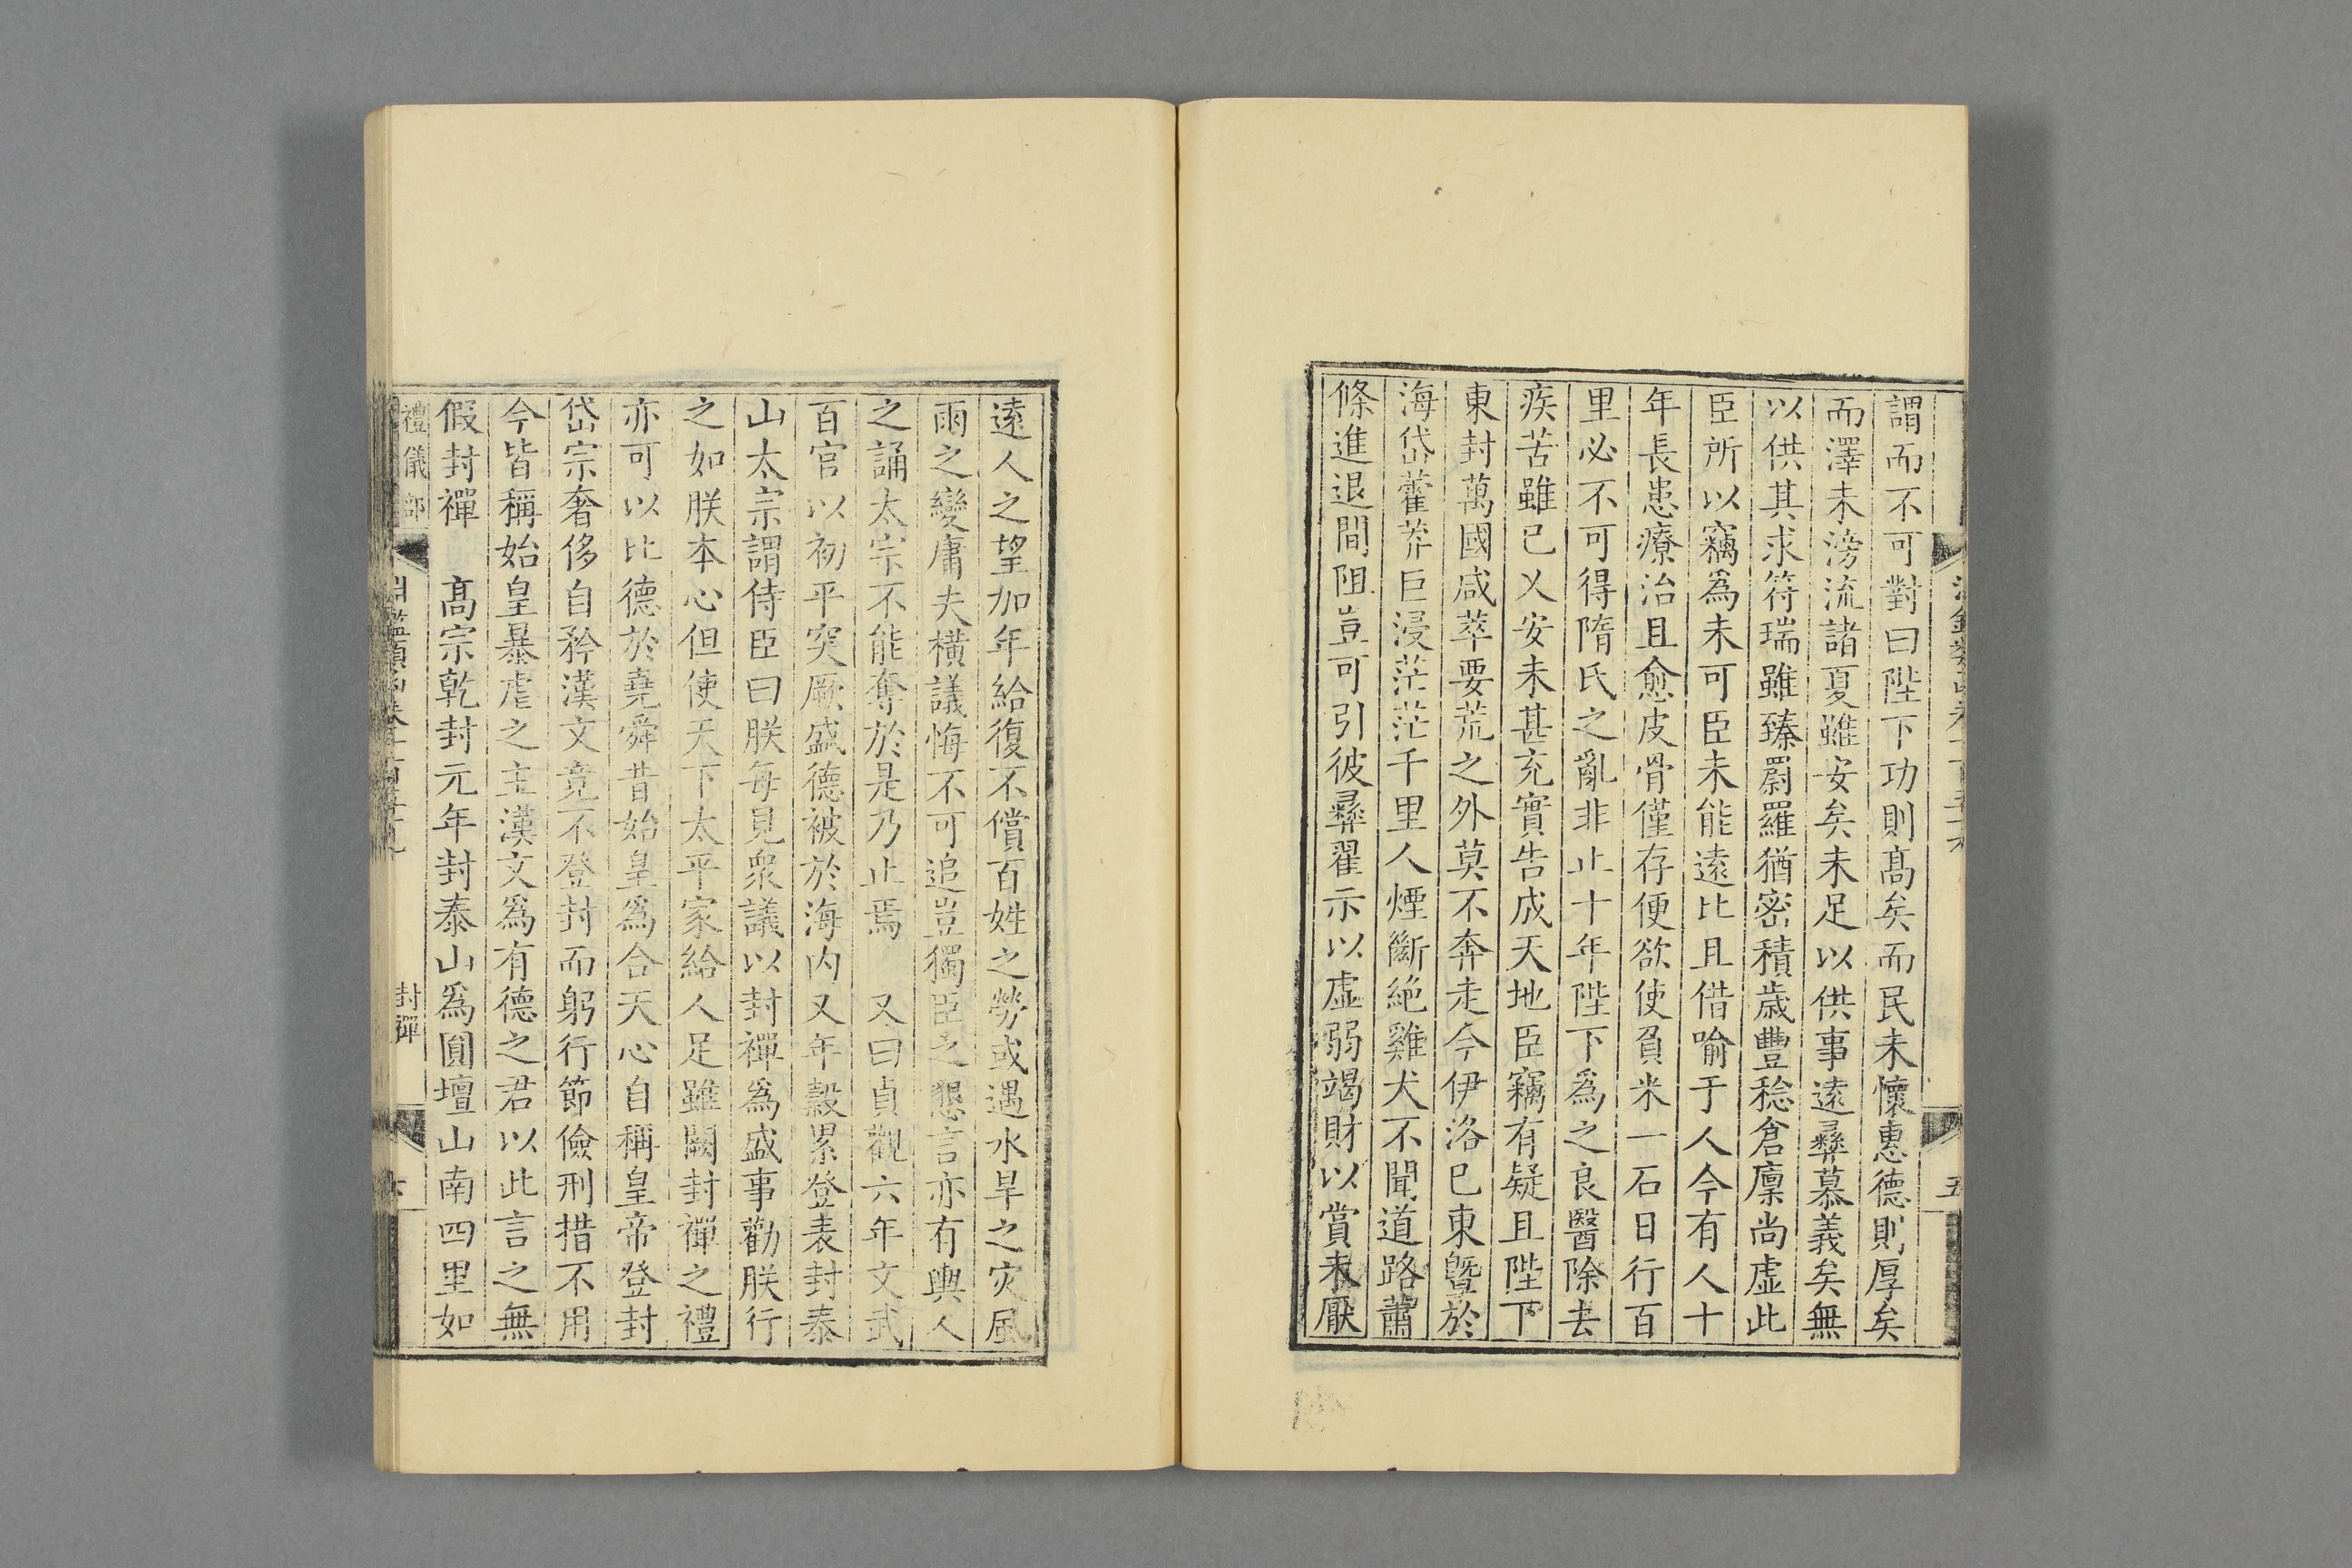 謂而不可對曰陛下功則髙矣而民未懷惠德則厚矣
而澤未滂流諸夏雖安矣未足以供事逺彞慕義矣無
以供其求符瑞雖臻罻羅猶密積歳豐稔倉廩尚虛此
臣所以竊爲未可臣未能逺比且借喻于人今有人十
年長患療治且愈皮骨僅存便欲使負米一石日行百
里必不可得隋氏之亂非止十年陛下爲之良醫除去
疾苦雖已乂安未甚充實告成天地臣竊有疑且陛下
東封萬國咸萃要荒之外莫不奔走今伊洛已東曁於
海岱藿莽巨浸茫茫千里人煙斷絶雞犬不聞道路蕭
條進退間阻豈可引彼彞翟示以虛弱竭財以賞未厭
五
逺人之望加年給復不償百姓之勞或遇水旱之灾風
雨之變庸夫橫議悔不可追豈獨臣之懇言亦有輿人
之誦太宗不能奪於是乃止焉　又曰貞觀六年文武
百官以初平突厥盛德被於海内又年穀累登表封泰
山太宗謂侍臣曰朕每見衆議以封禪爲盛事勸朕行
之如朕本心但使天下太平家給人足雖闕封禪之禮
亦可以比德於堯舜昔始皇爲合天心自稱皇帝登封
岱宗奢侈自矜漢文竟不登封而躬行節儉刑措不用
今皆稱始皇暴虐之主漢文爲有德之君以此言之無
假封禪　髙宗乾封元年封泰山爲圓壇山南四里如
禮儀部
封禪